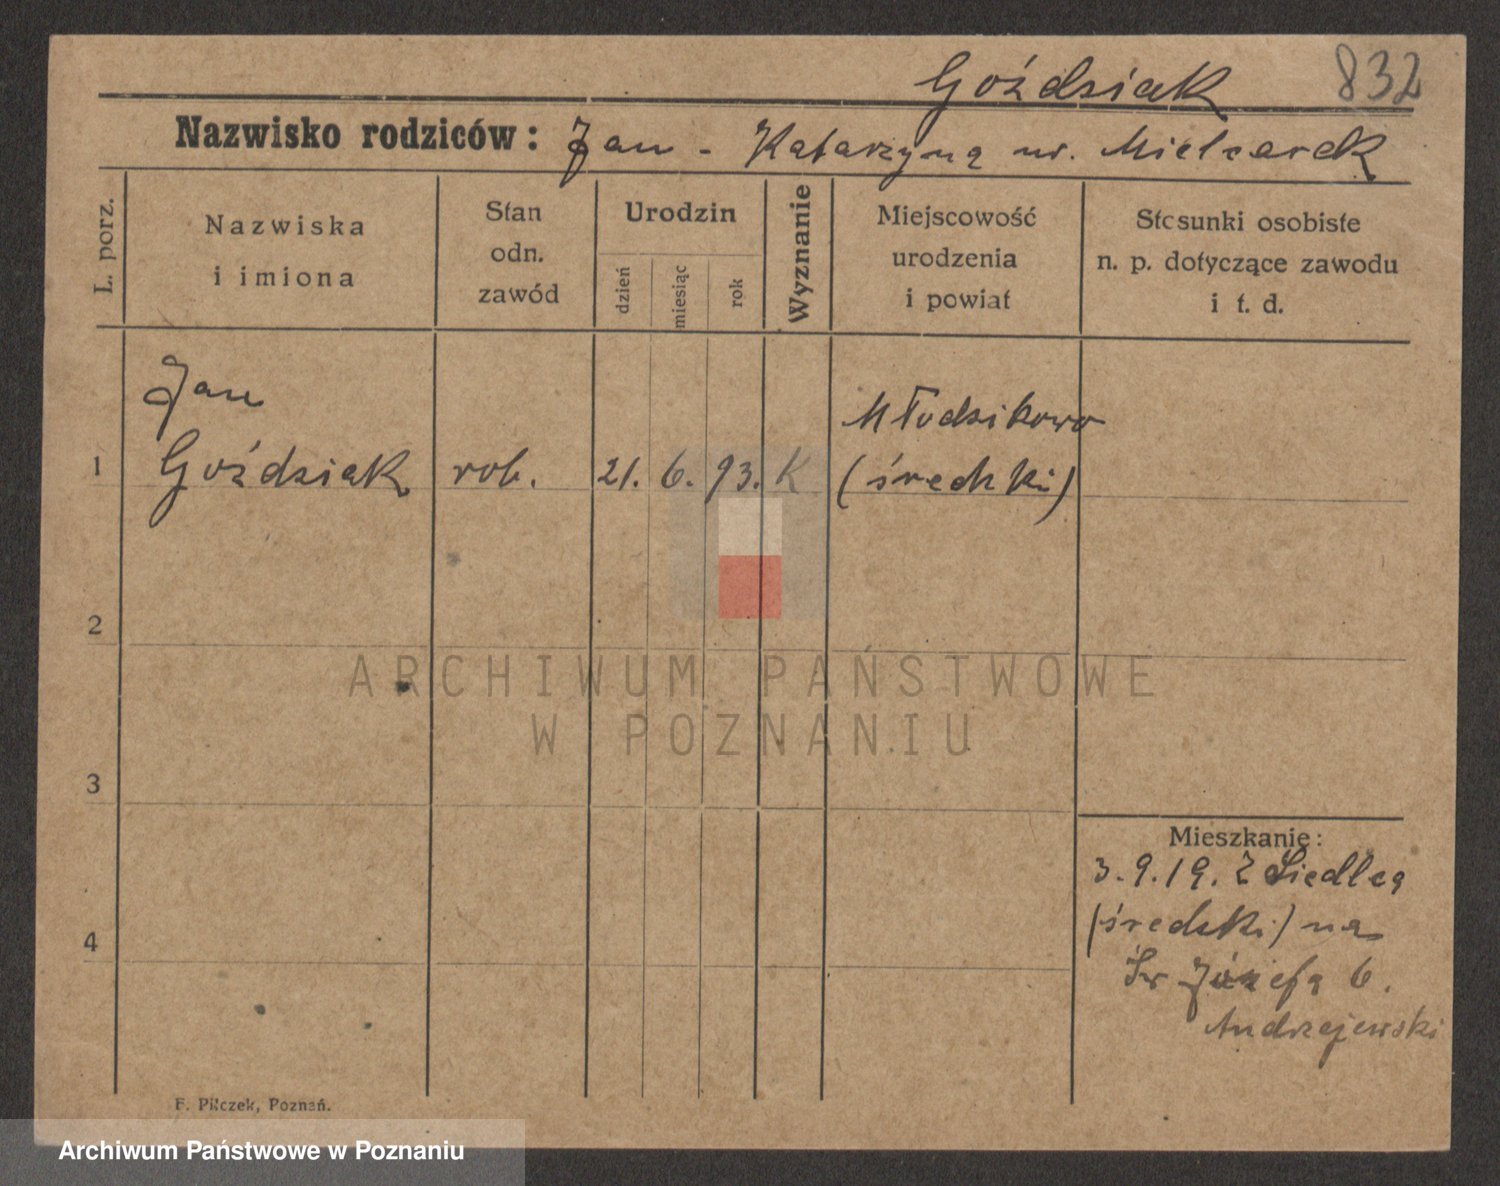 Goździak 832
Nazwisko rodziców: Jan - Katarzyna ur. Mielcarek
L. porz.
Nazwiska
i imiona
Stan
odn.
zawód
Urodzin
dzień
miesiąc
rok
Wyznanie
Miejscowość
urodzenia
i powiat
Stosunki osobiste
n. p. dotyczące zawodu
i t. d.
Jan
Młodzikowo
1 Goździak rob. 21. 6. 93. K (średzki)
2
ARCHIWUM PAŃSTWOWE
W POZNANIU
3
Mieszkanie:
3.9.19. z Siedlca
(średzki) na
4
Św Józefa 6.
Andrzejewski
F. Pilczek, Poznań.
Archiwum Państwowe w Poznaniu